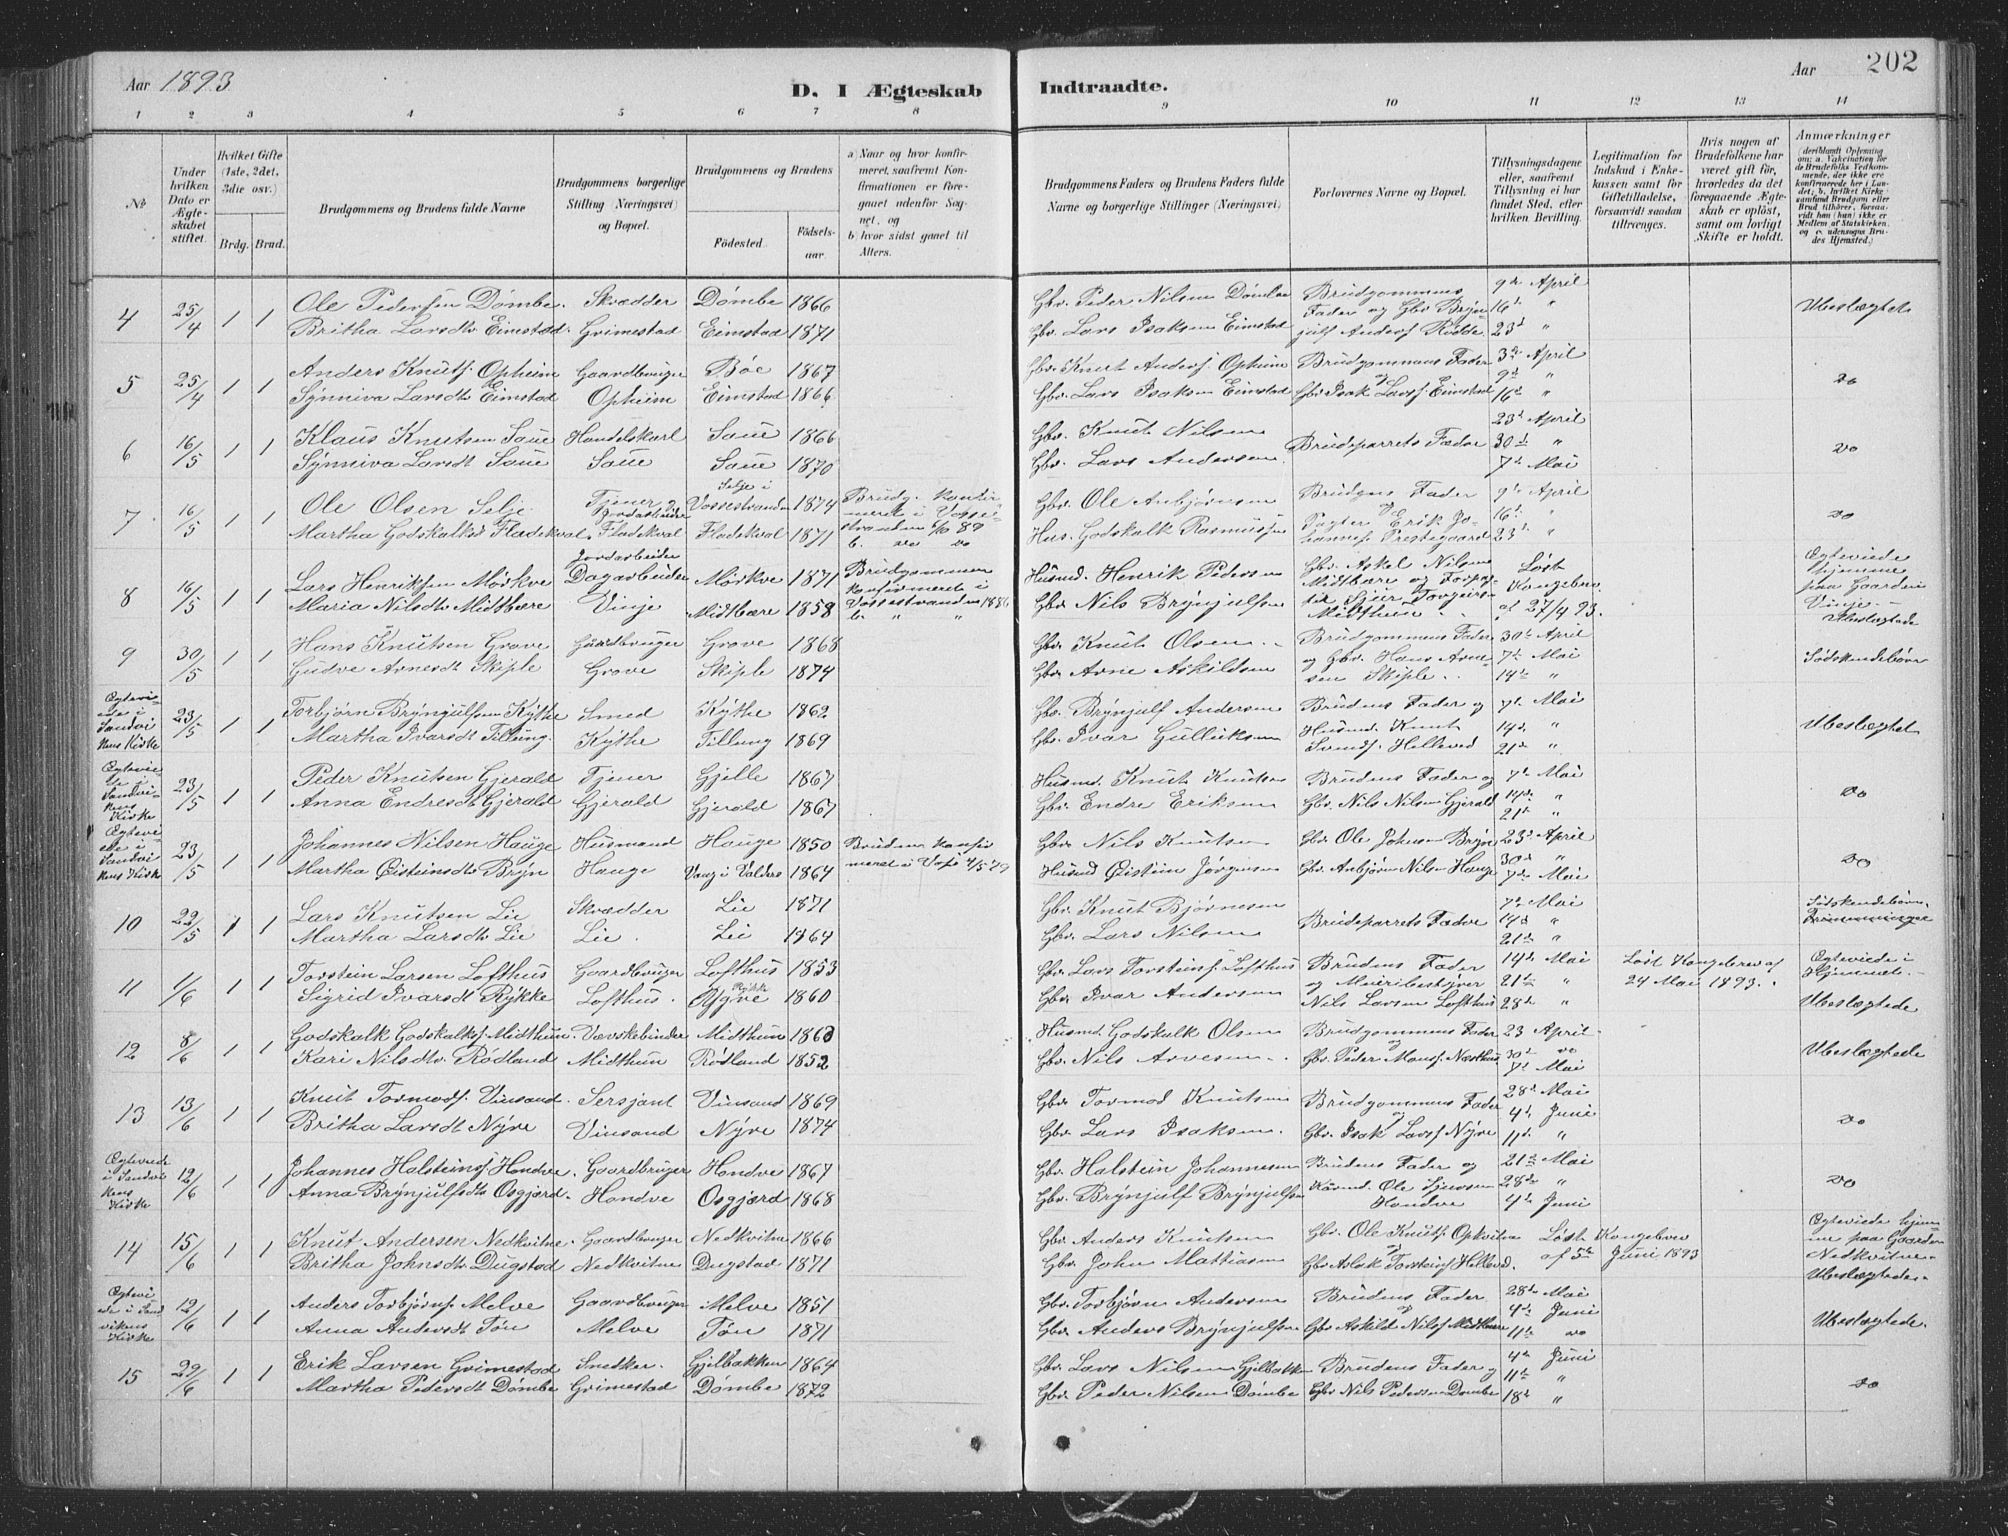 Aar 1893
D. I Ægteskab Indtraadte.
Aar
202
1 2 3 4 5 6 7 8 9 10 11 12 13 14
№
Under hvilken Dato er Ægteskabet stiftet.
Hvilket Gifte (1ste, 2det, 3die osv.)
Brdg. Brud.
Brudgommens og Brudens fulde Navne
Brudgommens borgerlige Stilling (Næringsvei) og Bopæl.
Brudgommens og Brudens
Fødested.
Fødselsaar.
a) Naar og hvor konfirmeret, saafremt Konfirmationen er foregaaet udenfor Sognet, og
b) hvor sidst gaaet til Alters.
Brudgommens Faders og Brudens Faders fulde Navne og borgerlige Stillinger (Næringsvei)
Forlovernes Navne og Bopæl.
Tillysningsdagene eller, saafremt Tillysning ei har fundet Sted, efter hvilken Bevilling.
Legitimation for Indskud i Enkekassen samt for Giftetilladelse, forsaavidt saadan tiltrænges.
Hvis nogen af Brudefolkene har været gift før, hvorledes da det foregaaende Ægteskab er opløst, samt om lovligt Skifte er holdt.
Anmærkninger
4 25/4 1 1 Ole Pedersen Dømbe. Skrædder Dømbe 1866 Gbr. Peder Nilsen Dømbe Brudgommens 9de April
Britha Larsdtr Eimstad. Grimestad Eimstad 1871 Gbr. Lars Isaksen Eimstad Fader og Gbr Brynjulf Anders. Rødde 16de " 23d " Ubeslægtet
5 25/4 1 1 Anders Knuts. Opheim Gaardbruger Bøe 1867 Gbr. Knut Anders. Opheim Brudgommens Fader 3de April
Synniva Larsdtr Eimstad Opheim Eimstad 1866 Gbr. Lars Isaksen Eimstad og Gbr. Isak Lars. Eimstad 9de " 16de " do
6 16/5 1 1 Klaus Knutsen Saue Handelskarl Saue 1866 Gbr. Knut Nilsen Brudeparrets Fædre 23d April
Synniva Larsdt Saue Saue Saue 1870 Gbr. Lars Andersen 30d " 7de Mai do
7 16/5 1 1 Ole Olsen Selje Tjener og Jordarbeider Selje i Vossestranden 1874 Brudg. konfirmeret i Vossestranden 6/10 89 Gbr. Ole Anbjørnsen Brudgms Fader 9de April
Martha Godskalksd Fladekval Fladekval Fladekval 1871 b. do do Hus. Godskalk Rasmussen og Pagter Erik Johannes. Prestegaard 16de " 23d " do
8 16/5 1 1 Lars Henriksen Mørkve Jordarbeider Dagarbeider Mørkve 1871 Brudgommen konfirmeret i Vossestranden 1886 Husmd. Henrik Pedersen Gbr. Askel Nilsen Midtbære Løst Kongebrev
Maria Nilsdtr Midtbære Vinje Midtbære 1858 b. " " Gbr. Nils Brynjulfsen Midtheim af 27/4 93. Ægteviede hjemme paa Gaarden Vinje. Ubeslægtede
9 30/5 1 1 Hans Knutsen Grove Gaardbruger Grove 1868 Gbr. Knut Olsen Brudgommens Fader 30te April
Gudve Arnesdt Skiple Grove Skiple 1874 Gbr. Arne Askildsen og Gbr. Hans Arnesen Skiple 7de Mai 14de " Sødskendebørn
Ægteviede i Sandvikens Kirke 23/5 1 1 Torbjørn Brynjulfsen Kythe Smed Kythe 1862 Gbr. Brynjulf Andersen Brudens Fader og 7de Mai
Martha Ivarsdt Tillung. Kythe Tillung 1869 Gbr. Ivar Gulliksen Husmd. Knut Svends. Helleved 14d. " 21de " Ubeslægtet
Ægteviede i Sandvikens Kirke 23/5 1 1 Peder Knutsen Gjerald Tjener Gjelle 1867 Husmd. Knut Knutsen Brudens Fader og 7de Mai
Anna Endresdt Gjerald Gjerald Gjerald 1867 Gbr. Endre Eriksen Gbr. Nils Nilsen Gjerald 14de " 21de do
Ægteviede i Sandvikens Kirke 23/5 1 1 Johannes Nilsen Hauge Husmand Hauge 1850 Bruden konfirmeret i Vossestr 4/5 79 Gbr. Nils Knutsen Gbr. Ole Johnsen Bryn 23d April
Martha Øisteinsdtr Bryn Hauge Vang i Valders 1864 Husmd Øistein Jørgensen Gbr. Anbjørn Nilsen Hauge 30d " 7de Mai do
10 22/5 1 1 Lars Knutsen Lie Skrædder Lie 1871 Gbr. Knut Bjørnesen Brudeparrets Fædre 7de Mai
Martha Larsdtr Lie Lie. Lie 1864 Gbr. Lars Nilsen 14d " 21de " Sødskendebørn.
11 1/6 1 1 Torstein Larsen Lofthus Gaardbruger Lofthus 1853 Gbr. Lars Torsteins. Lofthus Brudens Fader 14de Mai Løst Kongebrev af 24 Mai 1893. Ægteviede i Hjemmet.
Sigrid Ivarsdt Rykke Lofthus. Rykke 1860 Gbr. Ivar Andersen og Meieribestyrer Nils Larsen Lofthus 21de " 28de " Ubeslægtede
12 8/6 1 1 Godskalk Godskalks. Midthun. Vævskebinder Midthun 1863 Husmd Godskalk Olsen Brudgommens Fader 23 April
Kari Nilsdtr Rødland Midthun Rødland 1852 Gbr. Nils Arvesen og Gbr. Peder Mons. Næsthus 30d do 7de Mai Ubeslægtede
13 13/6 1 1 Knut Tormods. Vinsand. Sersjant Vinsand 1869 Gbr. Tormod Knutsen Brudgommens Fader 28de Mai
Britha Larsdt Nyre Vinsand Nyre 1874 Gbr. Lars Isaksen og Gbr. Isak Lars. Nyre 4de Juni 11de " do
Ægteviede i Sandvikens Kirke 12/6 1 1 Johannes Halsteins. Hondve. Gaardbruger Hondve 1867 Gbr. Halstein Johannesen Brudens Fader og 21de Mai
Anna Brynjulfsdtr Osgjerd. Hondve Osgjærd 1868 Gbr. Brynjulf Brynjulfsen Ole Sjursen Hondve 28de " 4de Juni do
14 15/6 1 1 Knut Andersen Nedkvitne. Gaardbruger Nedkvitne 1866 Gbr. Anders Knutsen Gbr. Ole Knuts. Opkvitne Løst Kongebrev
Britha Johnsdtr Dugstad Nedkvitne Dugstad 1871 Gbr. John Mathiasen og Gbr Aslak Torsteins. Helleved. af 5te Juni 1893 Ægteviede hjemme paa Gaarden Nedkvitne. Ubeslægtede.
Ægteviede i Sandvikens Kirke 12/6 1 1 Anders Torbjørns. Melve Gaardbruger Melve 1851 Gbr. Torbjørn Andersen Brudens Fader 28de Mai
Anna Andersdt Tøn Melve Tøn 1871 Gbr. Anders Brynjulfsen og Gbr Askild Nils. Midtbære 4de Juni 11te do Ubeslægtede.
15 29/6 1 1 Erik Larsen Grimestad Snedker. Gjelbakken 1864 Gbr. Lars Nilsen Gjelbakken Brudens Fader og 4de Juni
Martha Pedersdt Dømbe Grimestad Dømbe 1872 Gbr. Peder Nilsen Dømbe Gbr Nils Pedersen Dømbe 11te " 18d " do